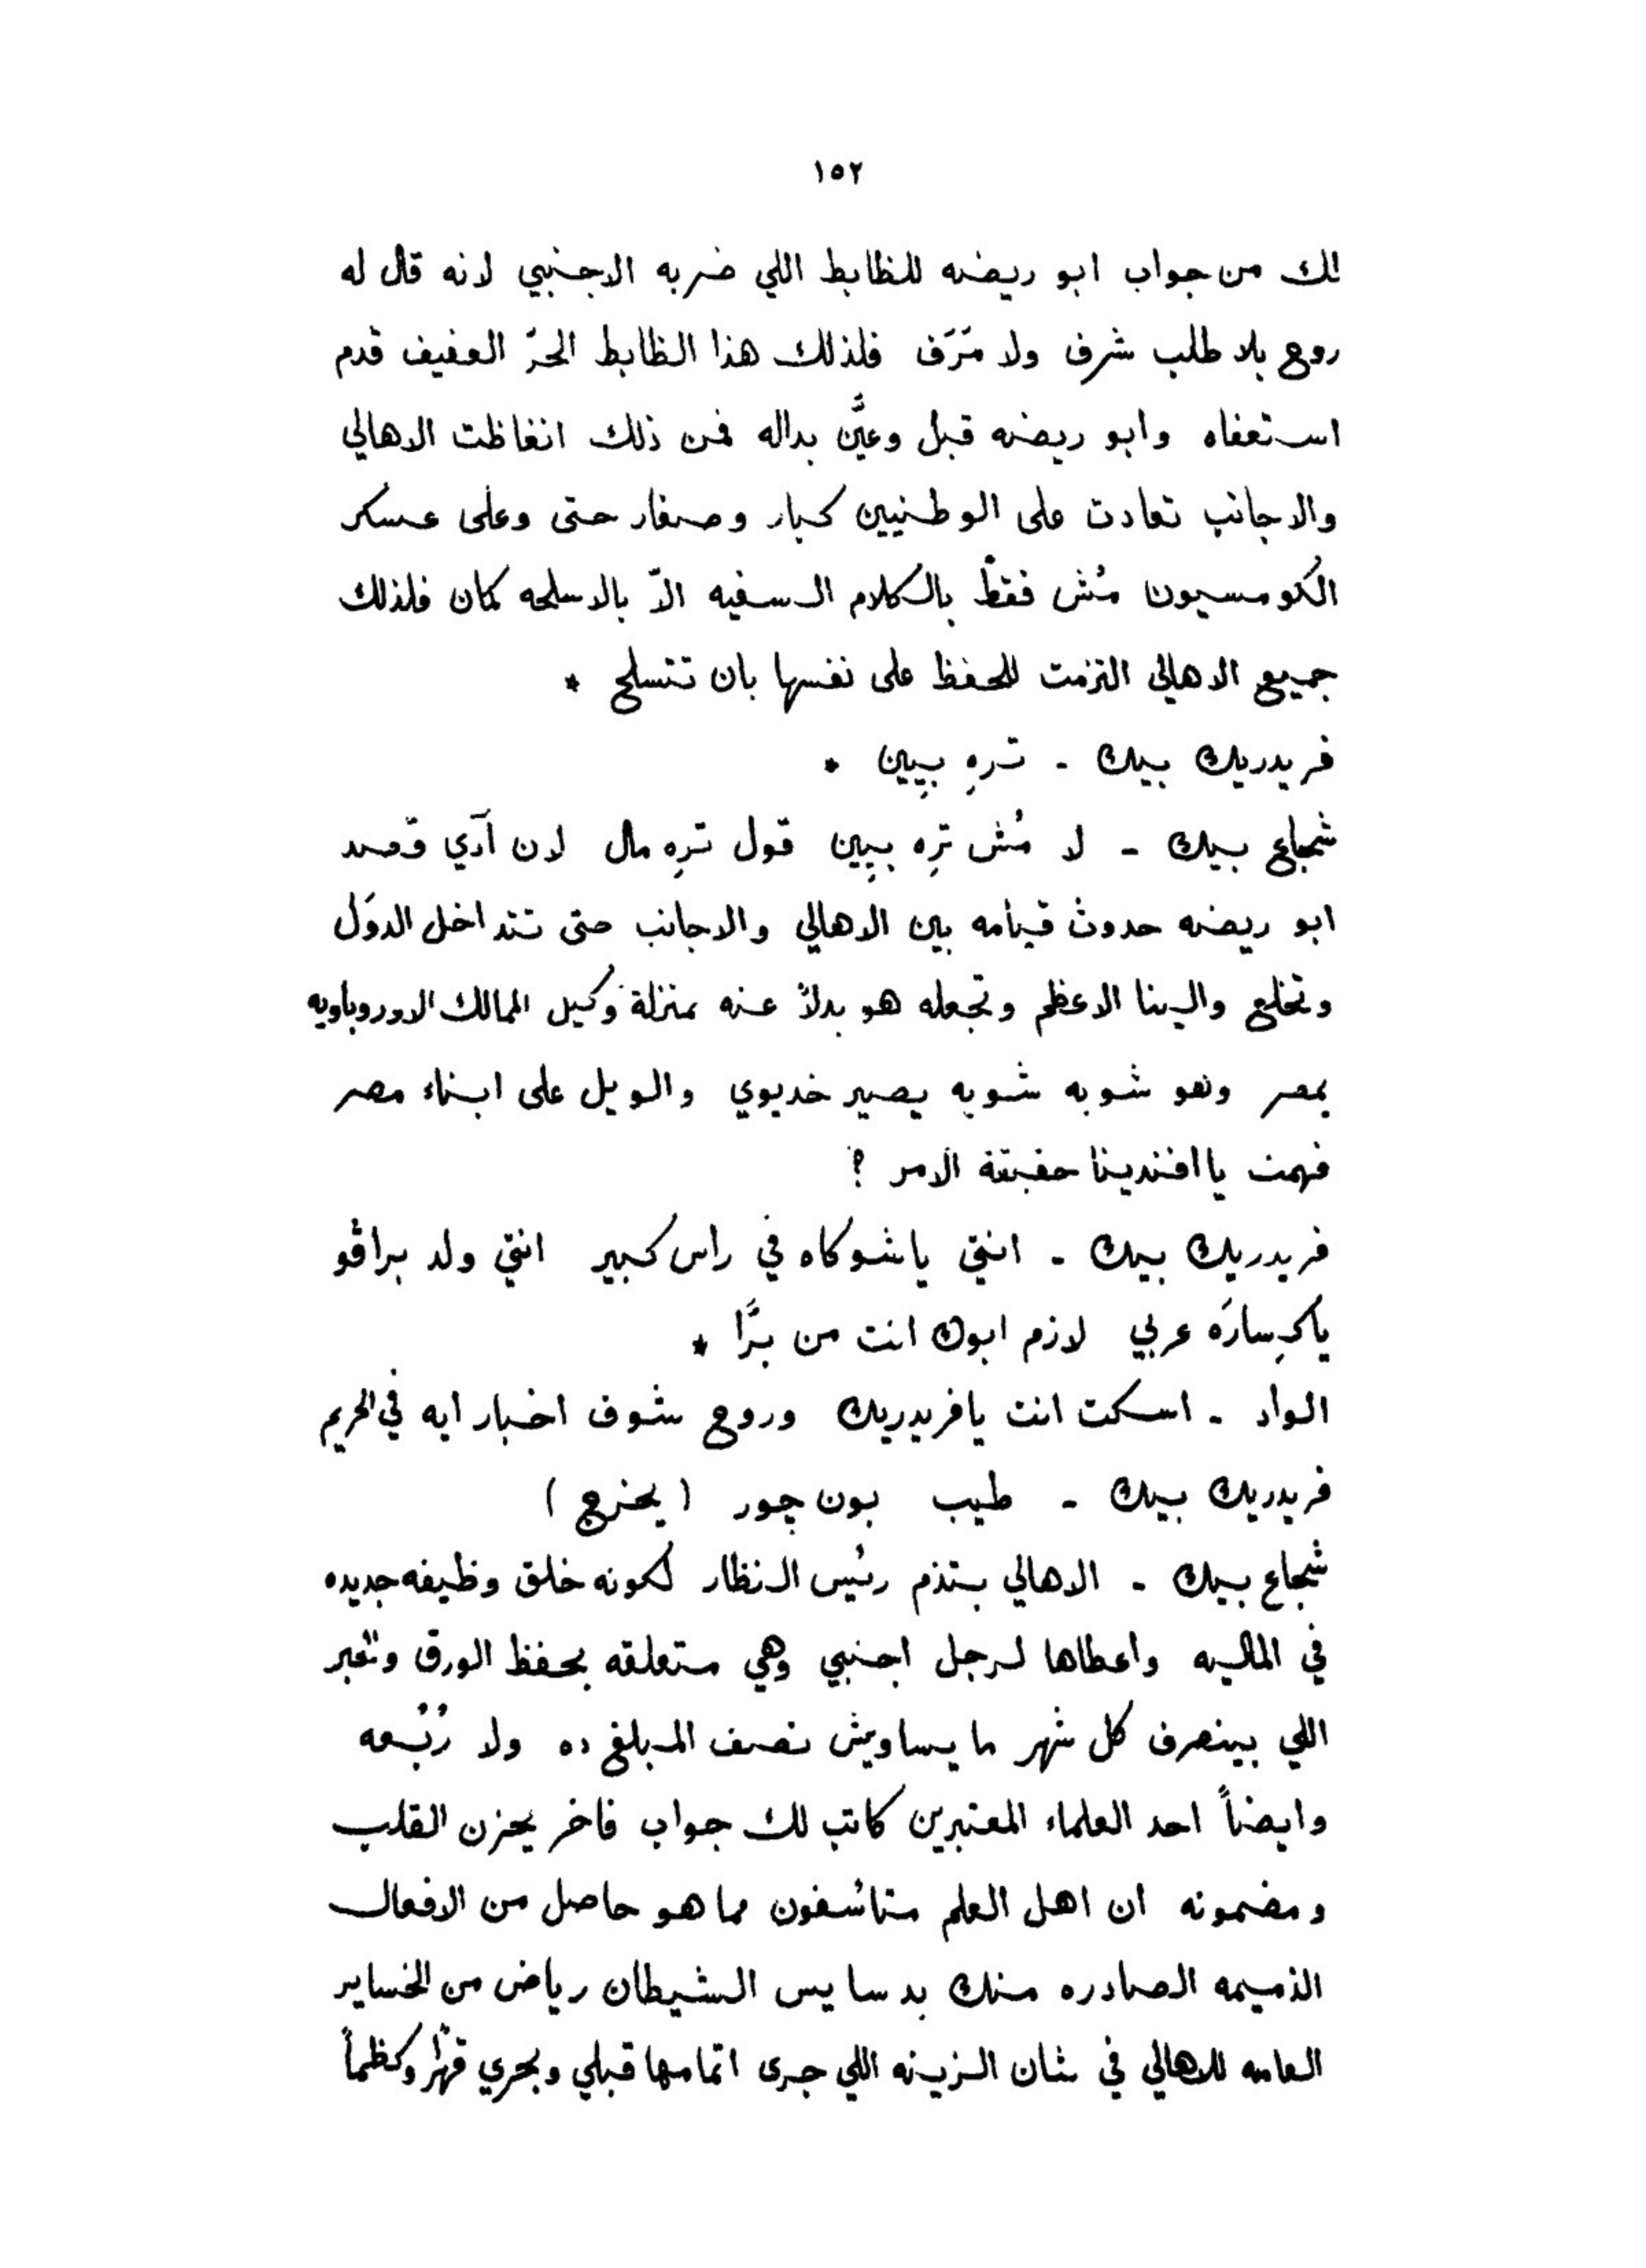 ١٥٢
لك من جواب ابو ريضه للظابط اللي ضربه الاجنبي لانه قال له
روح بلا طلب شرف ولا مَرَف فلذلك هذا الظابط الحرّ العفيف قدم
استعفاه وابو ريضه قبل وعيَّن بداله فمن ذلك انغاظت الاهالي
والاجانب تعادت على الوطنيين كبار وصغار حتى وعلى عسكر
الكومسيون مُش فقط بالكلام السفيه الاّ بالاسلحه كمان فلذلك
جميع الاهالي التزمت للحفظ على نفسها بان تتسلح *
فريدريك بيك - تره بيين *
شجاع بيك - لا مُش تره بيين قول تره مال لان آدي قصد
ابو ريضه حدوث قيامه بين الاهالي والاجانب حتى تتداخل الدوَل
وتخلع والينا الاعظم وتجعله هو بدلاً عنه بمنزلة وكيل الممالك الاوروباويه
بمصر وهو شويه شويه يصير خديوي والويل على ابناء مصر
فهمت يا افندينا حقيقة الامر ؟
فريدريك بيك - انتي ياشوكاه في راس كبير انتي ولد براڤو
ياكِسارَه عربي لازم ابوك انت من برَّا *
الواد - اسكت انت يافريدريك وروح شوف اخبار ايه في الحريم
فريدريك بيك - طيب بون چور (يخرج)
شجاع بيك - الاهالي بتذم رئيس النظار لكونه خلق وظيفه جديده
في الماليه واعطاها لرجل اجنبي وهي متعلقه بحفظ الورق والحبر
اللي بينصرف كل شهر ما يساويش نصف المبلغ ده ولا رُبُعه
وايضاً احد العلماء المعتبرين كاتب لك جواب فاخر يحزن القلب
ومضمونه ان اهل العلم متأسفون مما هو حاصل من الافعال
الذميمه الصادره منك بدسايس الشيطان رياض من الخساير
العامه للاهالي في شان الزينه اللي جرى اتمامها قبلي وبحري قهراً وكظماً